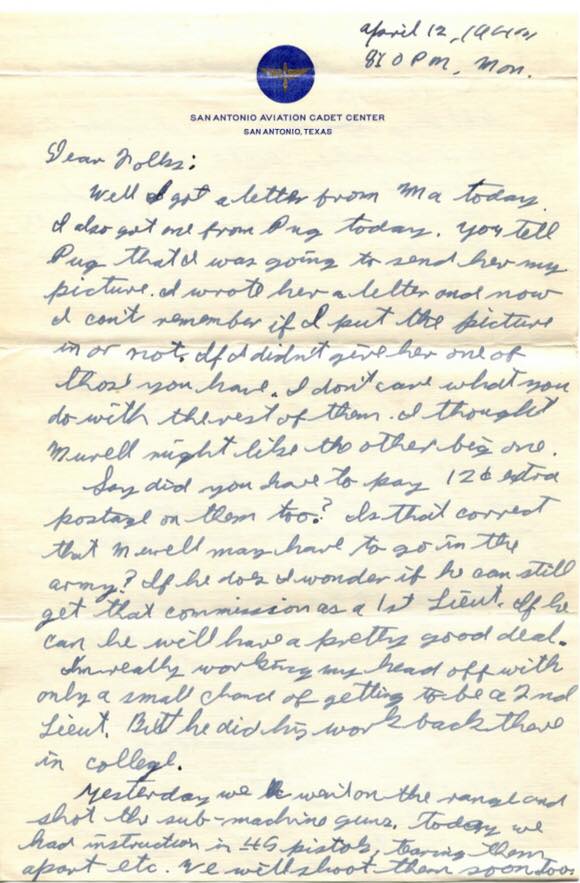 April 12, 
8:10 P.M., Mon.
SAN ANTONIO AVIATION CADET CENTER
SAN ANTONIO, TEXAS
Dear Folks:
Well I got a letter from Ma today.
I also got one from Pug today. You tell
Pug that I was going to send her my
picture. I wrote her a letter and now
I can't remember if I put the picture
in or not. If I didn't give her one of
those you have. I don't care what you
do with the rest of them. I thought
Murell might like the other big one.
Say did you have to pay 12¢ extra
postage on them too? Is that correct
that Murell may have to go in the
army? If he does I wonder if he can still
get that commission as a 1st Lieut. If he
can he will have a pretty good deal.
I'm really working my head off with
only a small chance of getting to be a 2nd
Lieut. But he did his work back there
in college.
Yesterday we went on the range and
shot the sub-machine guns. Today we
had instruction in 45 pistols, tearing them
apart etc. We will shoot them soon too.